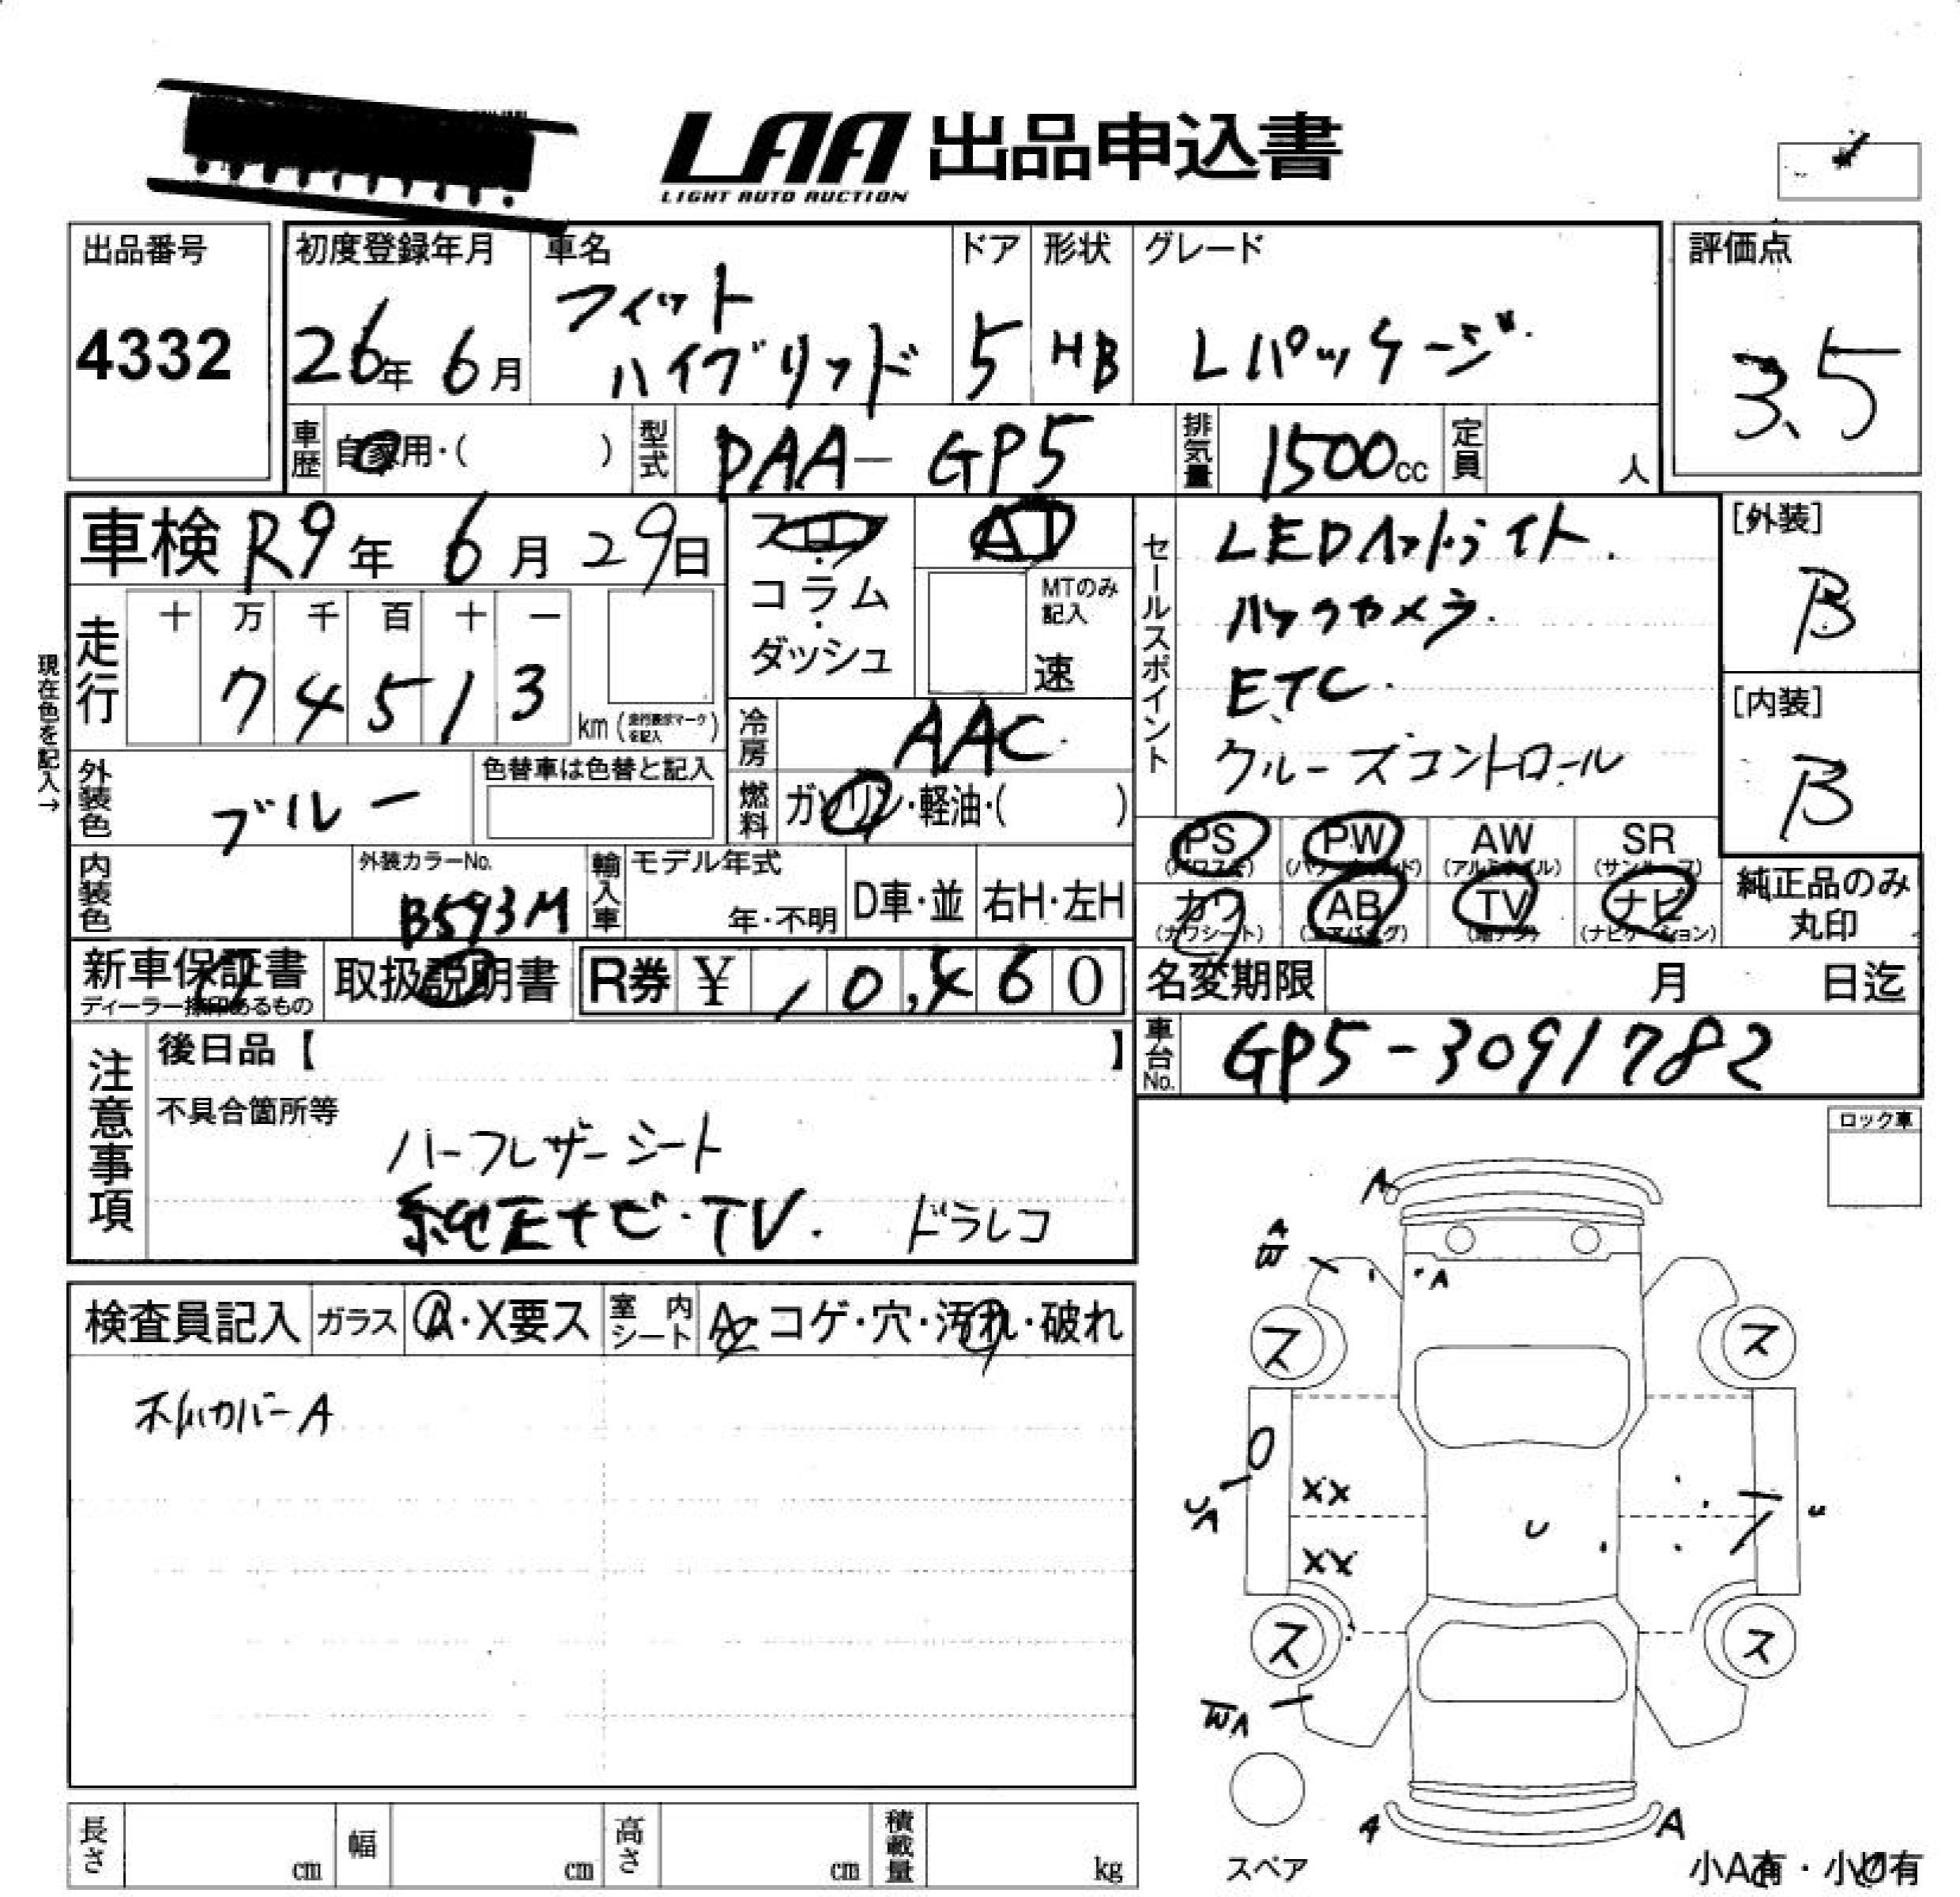 LAA 出品申込書
LIGHT AUTO AUCTION
出品番号
4332
初度登録年月
26年 6月
車名
フィット
ハイブリッド
ドア
5
形状
HB
グレード
Lパッケージ
評価点
3.5
車歴 自家用・( )
型式 DAA-GP5
排気量 1500cc
定員 人
車検 R9年 6月 29日
フロア・コラム・ダッシュ
AT
MTのみ記入
速
走行
十 万 千 百 十 一
7 4 5 1 3
km (走行要求マークを記入)
現在色を記入→
冷房 AAC
燃料 ガソリン・軽油・( )
外装色 ブルー
色替車は色替と記入
内装色
外装カラーNo.
B593M
輸入車
モデル年式
年・不明
D車・並
右H・左H
セールスポイント
LEDヘッドライト.
バックカメラ.
ETC.
クルーズコントロール
[外装]
B
[内装]
B
PS PW AW SR
(パワステ) (パワーウィンド) (アルミホイル) (サンルーフ)
カワ AB TV ナビ
(カワシート) (エアバッグ) (ナビゲーション)
純正品のみ
丸印
新車保証書
ディーラー捺印あるもの
取扱説明書
R券 ¥ 10,460
名変期限 月 日迄
車台No. GP5-3091782
注意事項
後日品【 】
不具合箇所等
ハーフレザーシート
純正ナビ・TV. ドラレコ
ロック車
検査員記入
ガラス A・X要ス
室内シート
コゲ・穴・汚れ・破れ
カバーA
A
A
W
A
ス ス
XX
XX
U
UA
U
ス ス
WA
A A
スペア
小A有・小U有
長さ cm
幅 cm
高さ cm
積載量 kg